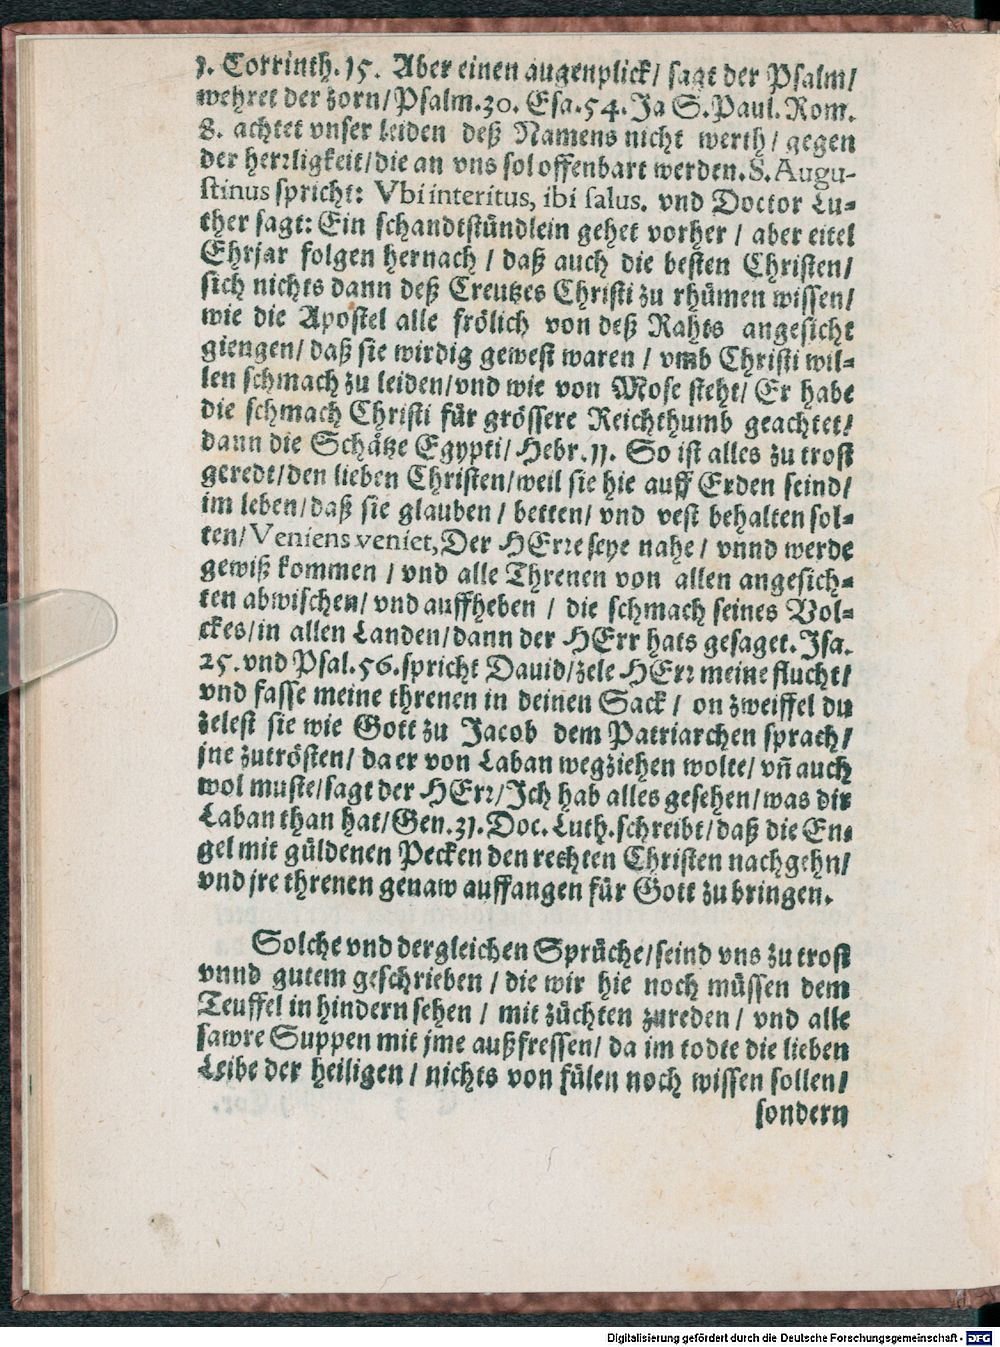 1. Corrinth. 15. Aber einen augenplick/ sagt der Psalm/
wehret der zorn/Psalm.30. Esa.54. Ja S. Paul. Rom.
8. achtet vnser leiden deß Namens nicht werth/ gegen
der herrligkeit/die an vns sol offenbart werden. S. Augu-
stinus spricht: Vbi interitus, ibi salus. vnd Doctor Lu-
ther sagt: Ein schandtstündlein gehet vorher / aber eitel
Ehrjar folgen hernach / daß auch die besten Christen/
sich nichts dann deß Creutzes Christi zu rhümen wissen/
wie die Apostel alle frölich von deß Rahts angesicht
giengen/ daß sie wirdig gewest waren / vmb Christi wil-
len schmach zu leiden/vnd wie von Mose steht/ Er habe
die schmach Christi für grössere Reichthumb geachtet/
dann die Schätze Egypti/ Hebr.11. So ist alles zu trost
geredt/den lieben Christen/weil sie hie auff Erden seind/
im leben/daß sie glauben / betten/ vnd vest behalten sol-
ten/Veniens veniet, Der HErre seye nahe / vnnd werde
gewiß kommen / vnd alle Threnen von allen angesich-
ten abwischen/ vnd auffheben / die schmach seines Vol-
ckes/in allen Landen/dann der HErr hats gesaget. Isa.
25. vnd Psal.56. spricht Dauid/zele HErr meine flucht/
vnd fasse meine threnen in deinen Sack / on zweiffel du
zelest sie wie Gott zu Jacob dem Patriarchen sprach/
jne zutrösten/ da er von Laban wegziehen wolte/ vñ auch
wol muste/sagt der HErr/Ich hab alles gesehen/was dir
Laban than hat/Gen.31. Doc. Luth. schreibt/daß die En-
gel mit güldenen Pecken den rechten Christen nachgehn/
vnd jre threnen genaw auffangen für Gott zu bringen.
Solche vnd dergleichen Sprüche/seind vns zu trost
vnnd gutem geschrieben / die wir hie noch müssen dem
Teuffel in hindern sehen / mit züchten zureden / vnd alle
sawre Suppen mit jme außfressen/ da im todte die lieben
Leibe der heiligen / nichts von fülen noch wissen sollen/
sondern
Digitalisierung gefördert durch die Deutsche Forschungsgemeinschaft - DFG